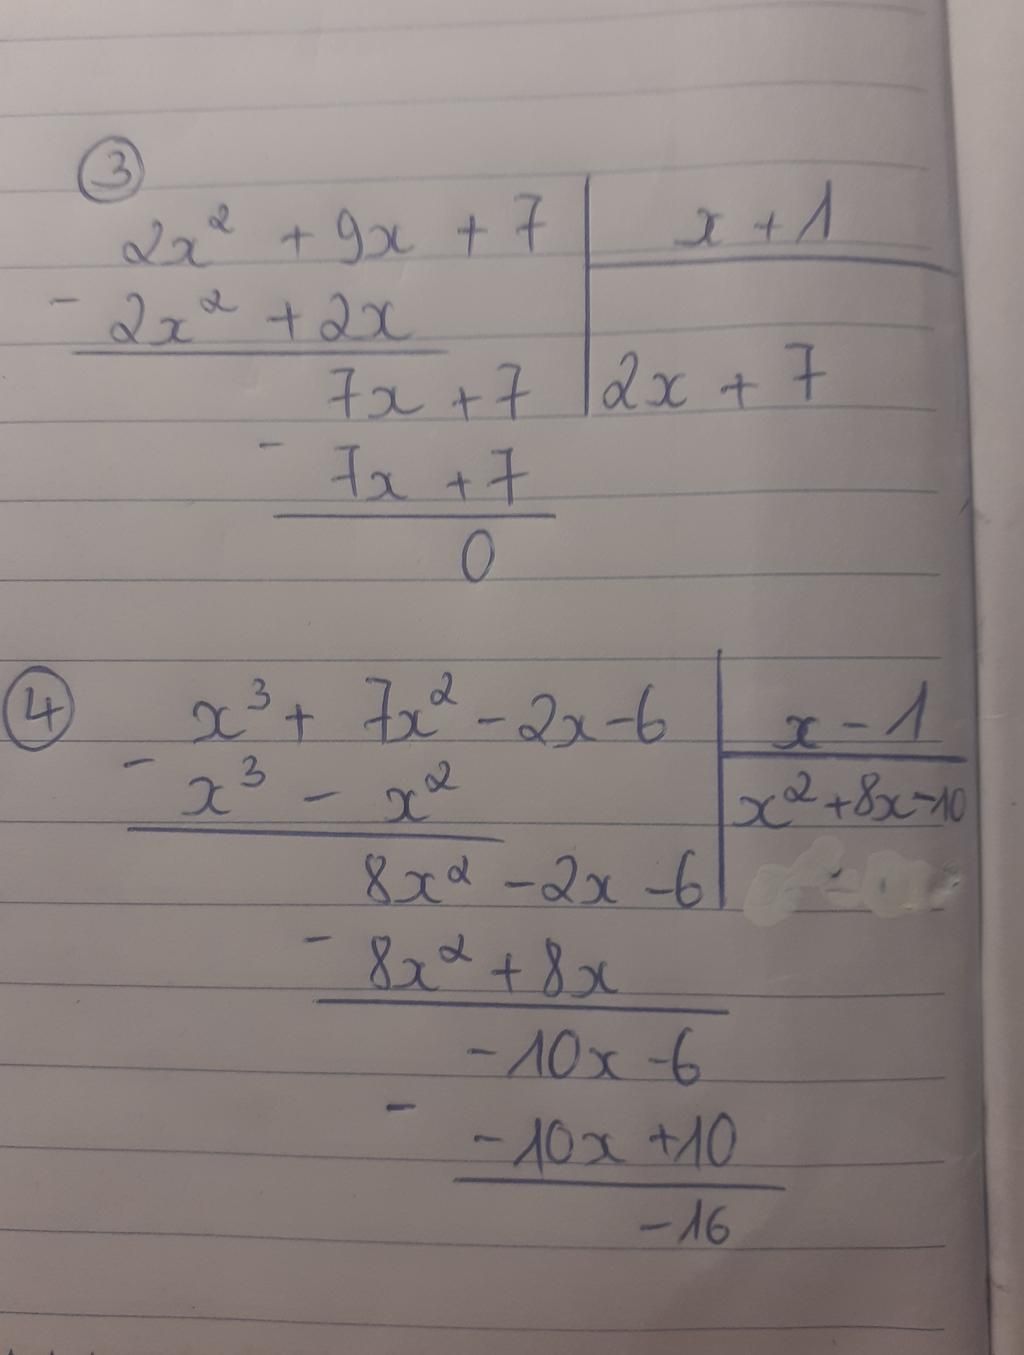 ③
2x² + 9x + 7 | x + 1
- 2x² + 2x
7x + 7 | 2x + 7
- 7x + 7
0
④ x³ + 7x² - 2x - 6 | x - 1
- x³ - x² | x² + 8x - 10
8x² - 2x - 6
- 8x² + 8x
-10x - 6
- -10x + 10
-16